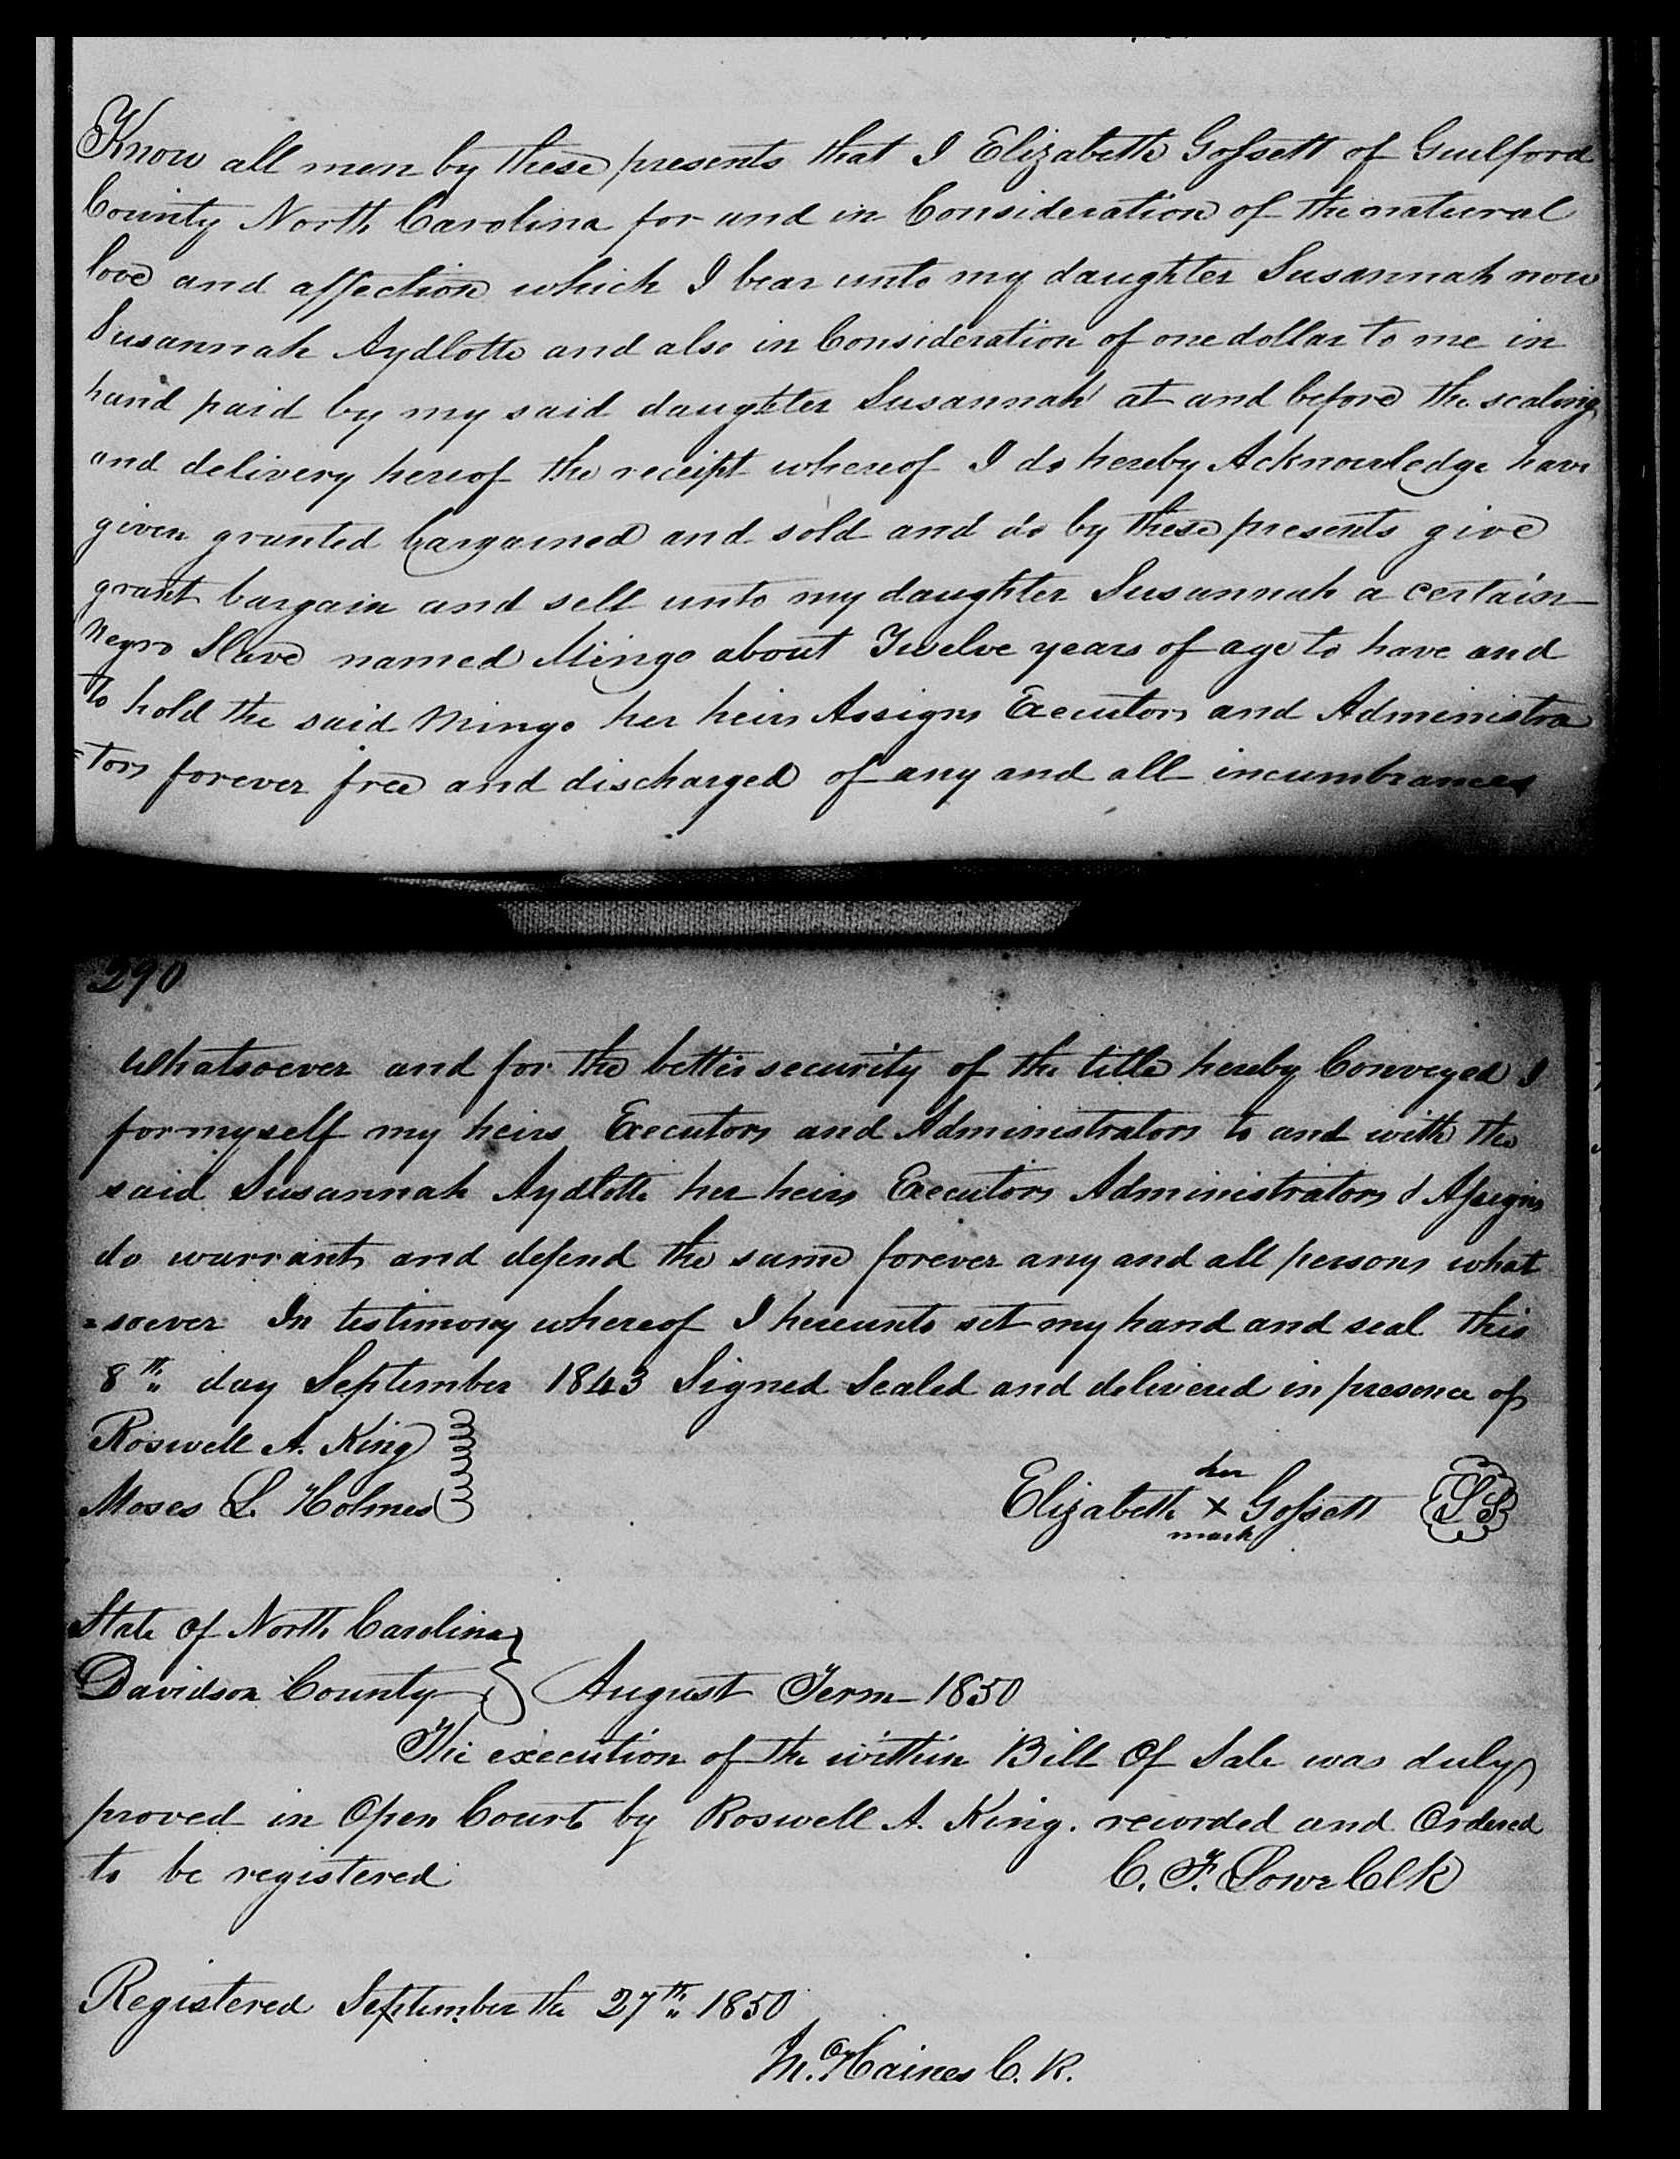 Know all men by these presents that I Elizabeth Gossett of Guilford
County North Carolina for and in Consideration of the natural
love and affection which I bear unto my daughter Susannah now
Susannah Aydlotte and also in Consideration of one dollar to me in
hand paid by my said daughter Susannah at and before the sealing
and delivery hereof the receipt whereof I do hereby Acknowledge have
given granted bargained and sold and do by these presents give
grant bargain and sell unto my daughter Susannah a certain
Negro Slave named Mingo about Twelve years of age to have and
to hold the said Mingo her heirs Assigns Executors and Administra
=tors forever free and discharged of any and all incumbrances
290
Whatsoever and for the better security of the title hereby Conveyed I
for myself my heirs Executors and Administrators to and with the
said Susannah Aydlotte her heirs Executors Administrators & Assigns
do warrant and defend the same forever any and all persons what
=soever In testimony whereof I hereunto set my hand and seal this
8th day September 1843 Signed Sealed and delivered in presence of
Roswell A. King
Moses L. Holmes
her
Elizabeth X Gossett LS
mark
State of North Carolina
Davidson County August Term 1850
The execution of the within Bill Of Sale was duly
proved in Open Court by Roswell A. King. recorded and Ordered
to be registered
C. F. Lowe Clk
Registered September the 27th 1850
Haines C. R.